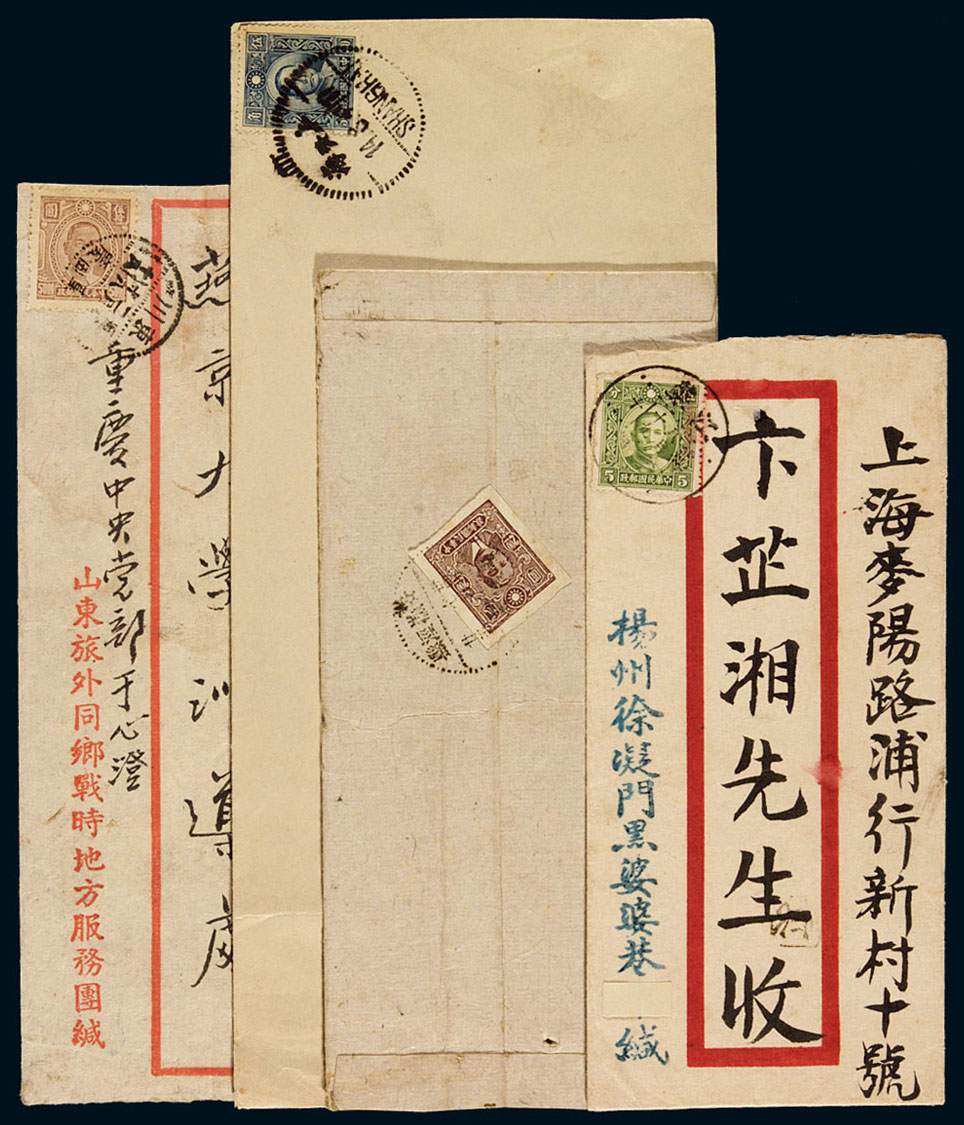 上海麥陽路浦行新村十號
卞芷湘先生收
揚州徐凝門黑婆婆巷
緘
5 中華民國郵政 5
分
SHANGHAI
14
燕京大學訓導處
重慶中央党部于心澄
山東旅外同鄉戰時地方服務團緘
圓